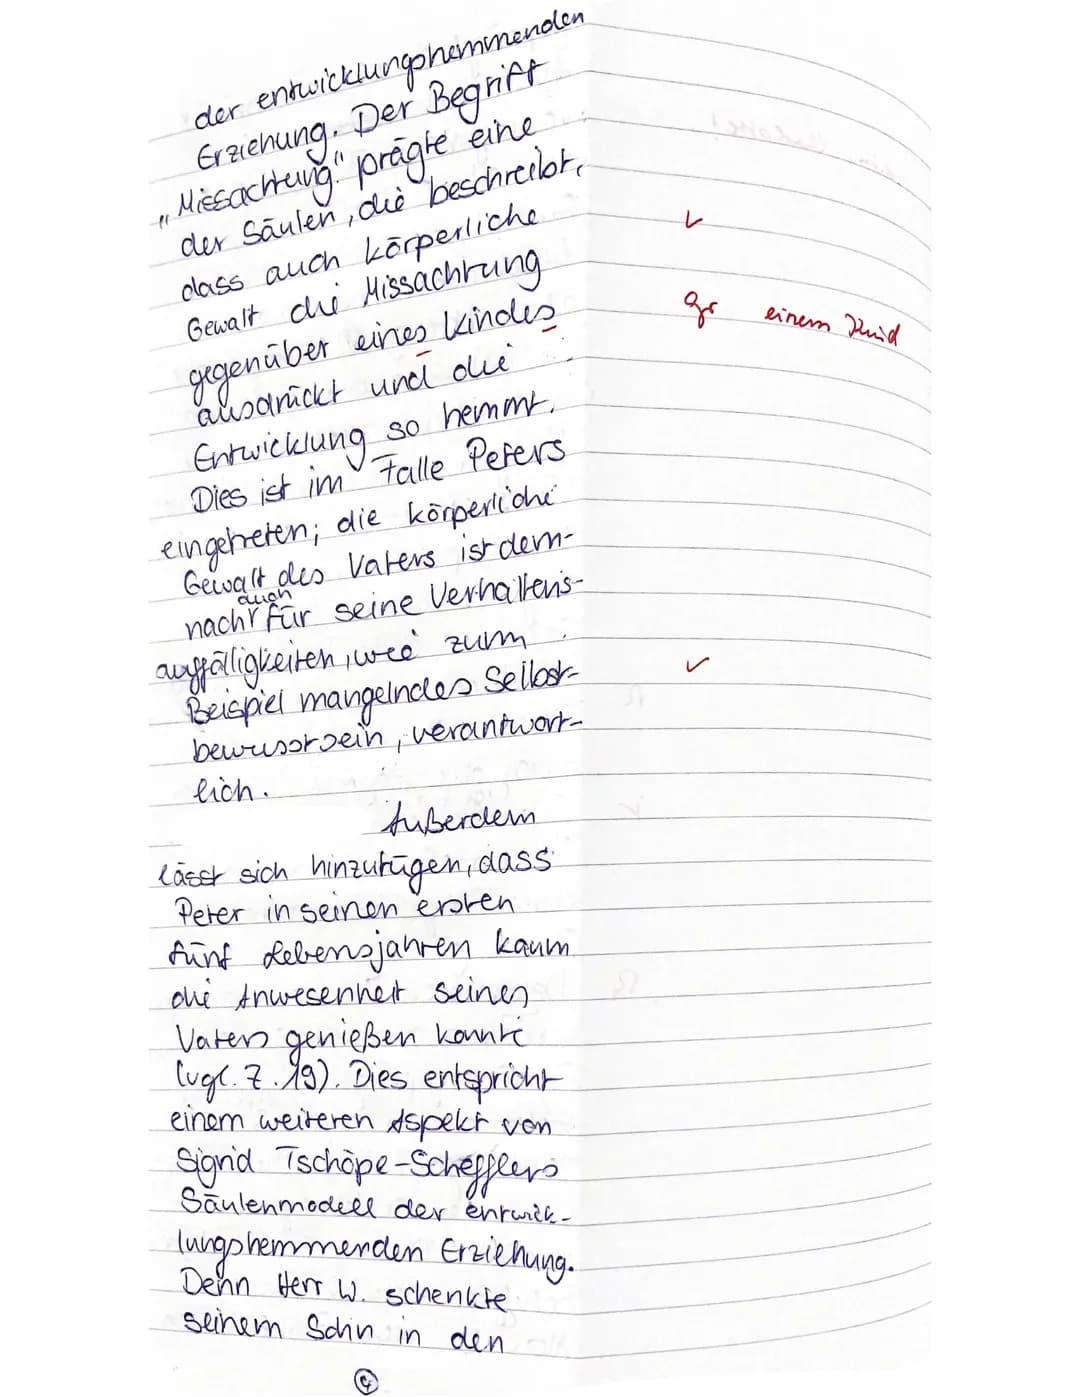 der entwicklungshemmenden
Erziehung. Der Begriff
„Missachtung" prägte eine
der Säulen, die beschreibt,
dass auch körperliche
Gewalt die Missachtung
gegenüber eines Kindes
gr einem Kind
ausdrückt und die
Entwicklung so hemmt.
Dies ist im Falle Peters
eingetreten; die körperliche
Gewalt des Vaters ist dem-
auch
nach für seine Verhaltens-
auffälligkeiten, wie zum
Beispiel mangelndes Selbst-
bewusstsein, verantwort-
lich.
Außerdem
lässt sich hinzufügen, dass
Peter in seinen ersten
fünf Lebensjahren kaum
die Anwesenheit seines
Vaters genießen konnte
(vgl. Z. 19). Dies entspricht
einem weiteren Aspekt von
Sigrid Tschöpe-Schefflers
Säulenmodell der entwick-
lungshemmenden Erziehung.
Denn Herr W. schenkte
seinem Sohn in den
4